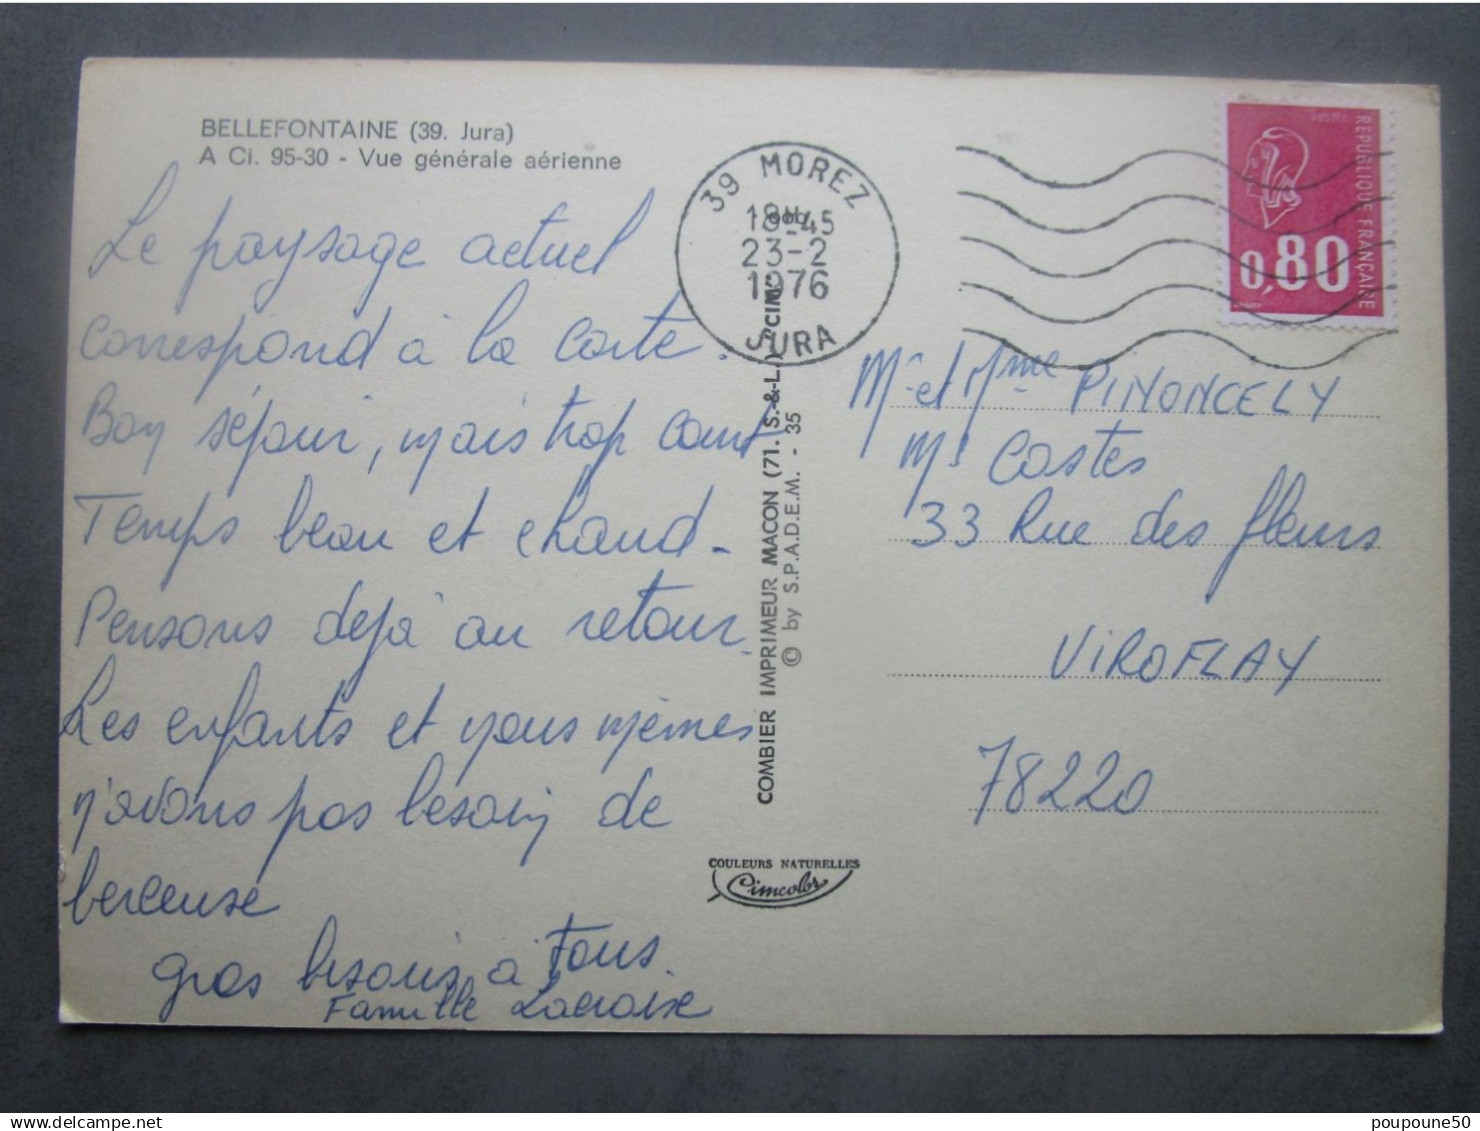 BELLEFONTAINE (39. Jura)
A Ci. 95-30 - Vue générale aérienne
Le paysage actuel
correspond à la carte.
Bon séjour, mais trop court
Temps beau et chaud -
Pensons déjà au retour.
Les enfants et nous mêmes
n'avons pas besoin de
berceuse
gros bisous à Tous.
Famille Lacroise
39 MOREZ
18H45
23-2
1976
JURA
COMBIER IMPRIMEUR MACON (71. S.-&-L.) "CIM"
© by S.P.A.D.E.M. - 35
COULEURS NATURELLES
Cimcolor
POSTES
REPUBLIQUE FRANÇAISE
0,80
Mr et Mme PINONCELY
Ms Costes
33 Rue des fleurs
VIROFLAY
78220
poupoune50